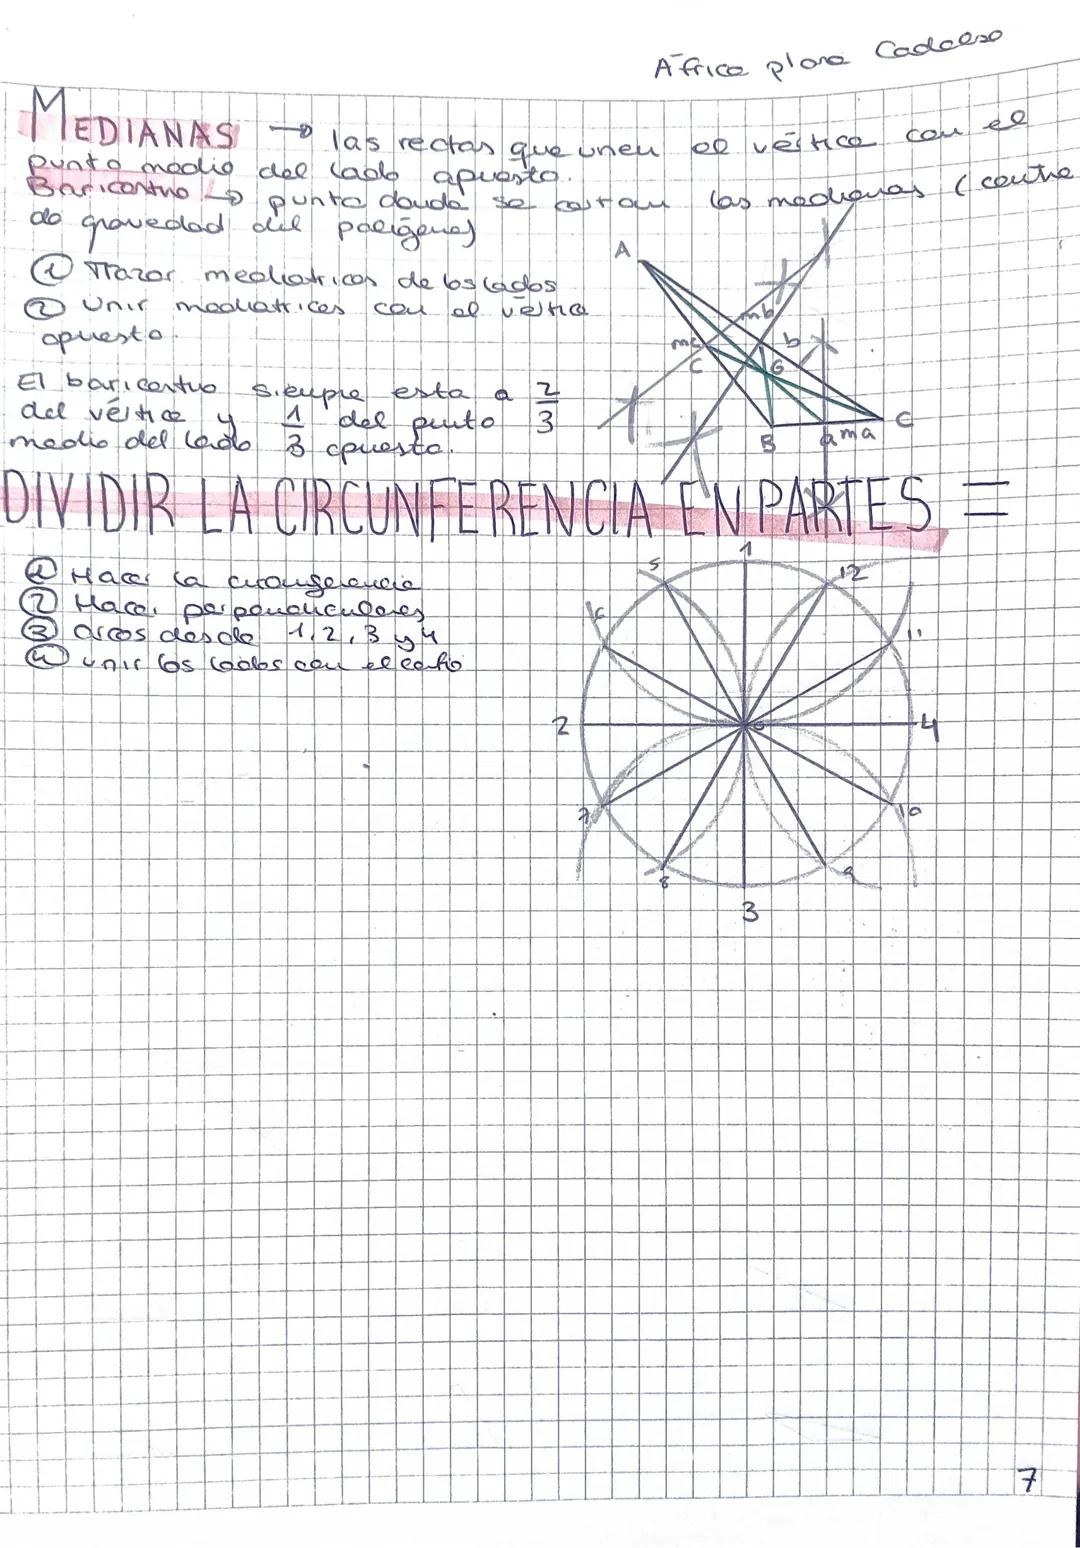 África plana Cadalso
MEDIANAS → las rectas que unen el vértice con el
punto medio del lado opuesto.
Baricentro → punto donde se cortan las medianas (centro
de gravedad del polígono)
① Trazar mediatrices de los lados
② Unir mediatrices con el vértice
opuesto.
El baricentro siempre esta a 2/3
del vértice y 1/3 del punto
medio del lado opuesto.
A
mb
mc
b
c
G
C
B
a ma
DIVIDIR LA CIRCUNFERENCIA EN PARTES =
① Hacer la circunferencia
② Hacer perpendiculares
③ arcos desde 1, 2, 3 y 4
④ unir los lados con el centro
1
5
12
6
11
2
4
7
10
8
9
3
7